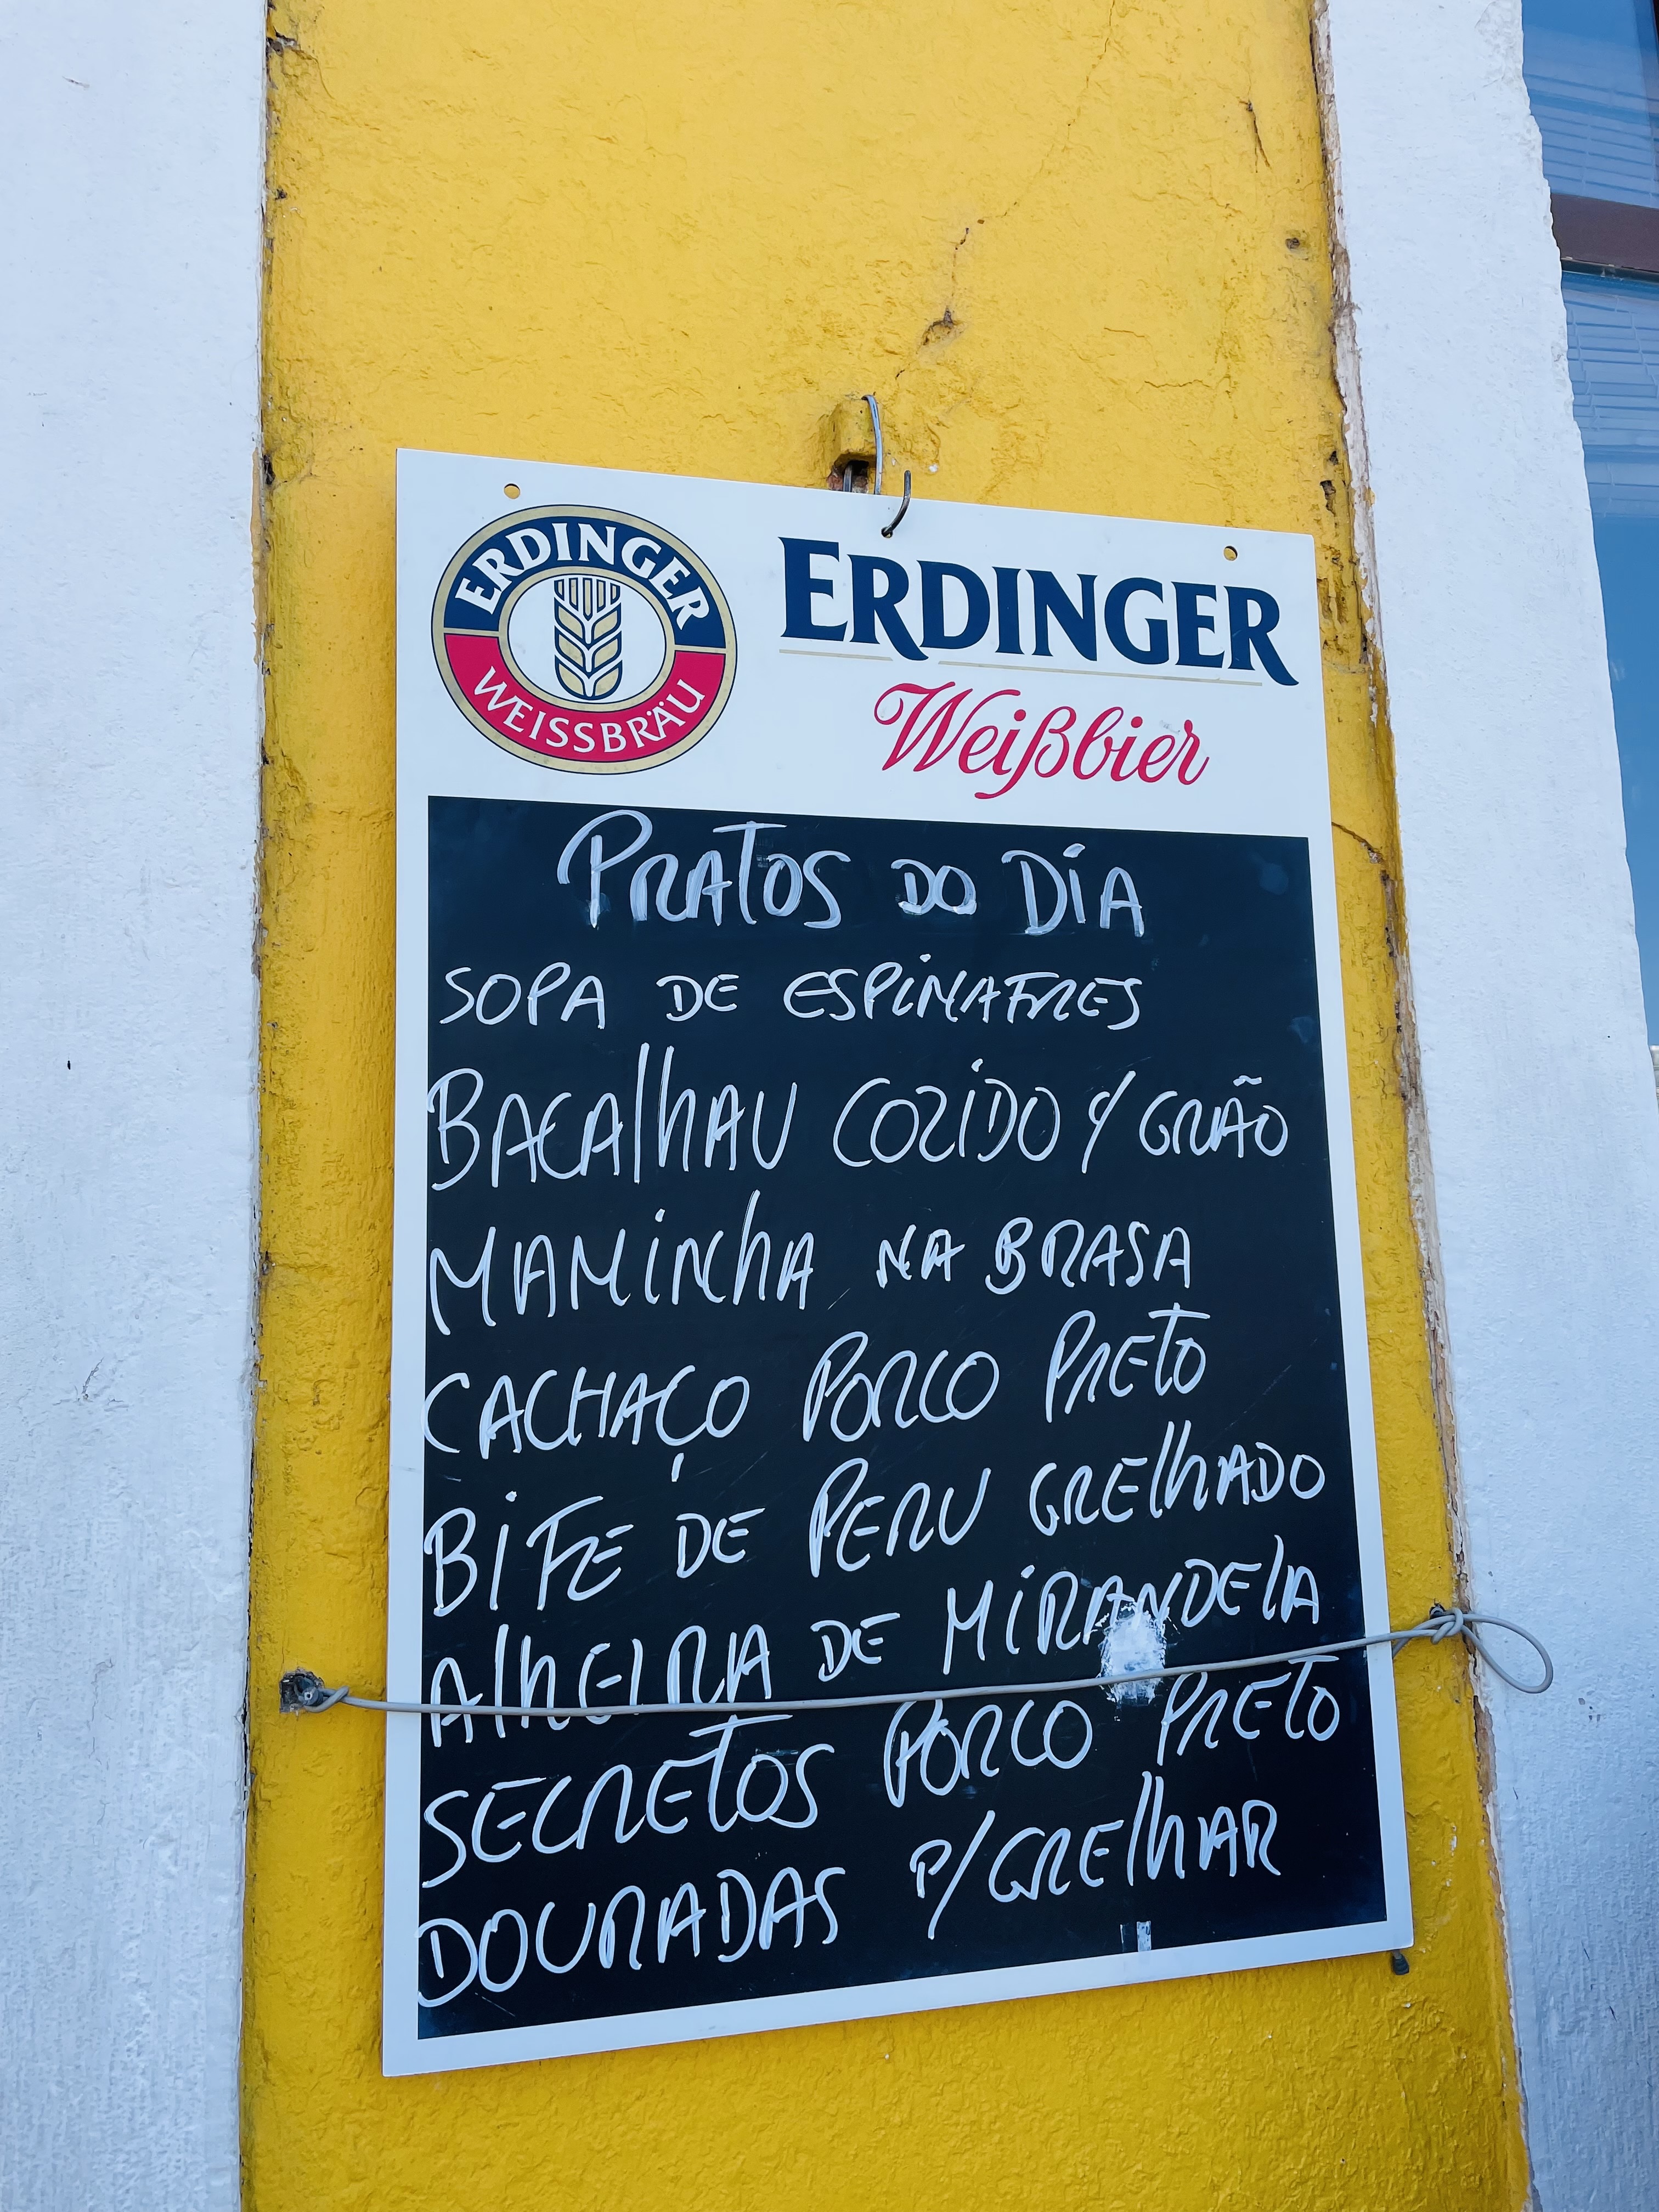 ERDINGER
WEISSBRÄU
ERDINGER
Weißbier
PRATOS DO DIA
SOPA DE ESPINAFRES
BACALHAU COZIDO C/ GRÃO
MAMINHA NA BRASA
CACHAÇO PORCO PRETO
BIFE DE PERU GRELHADO
ALHEIRA DE MIRANDELA
SECRETOS PORCO PRETO
DOURADAS P/GRELHAR